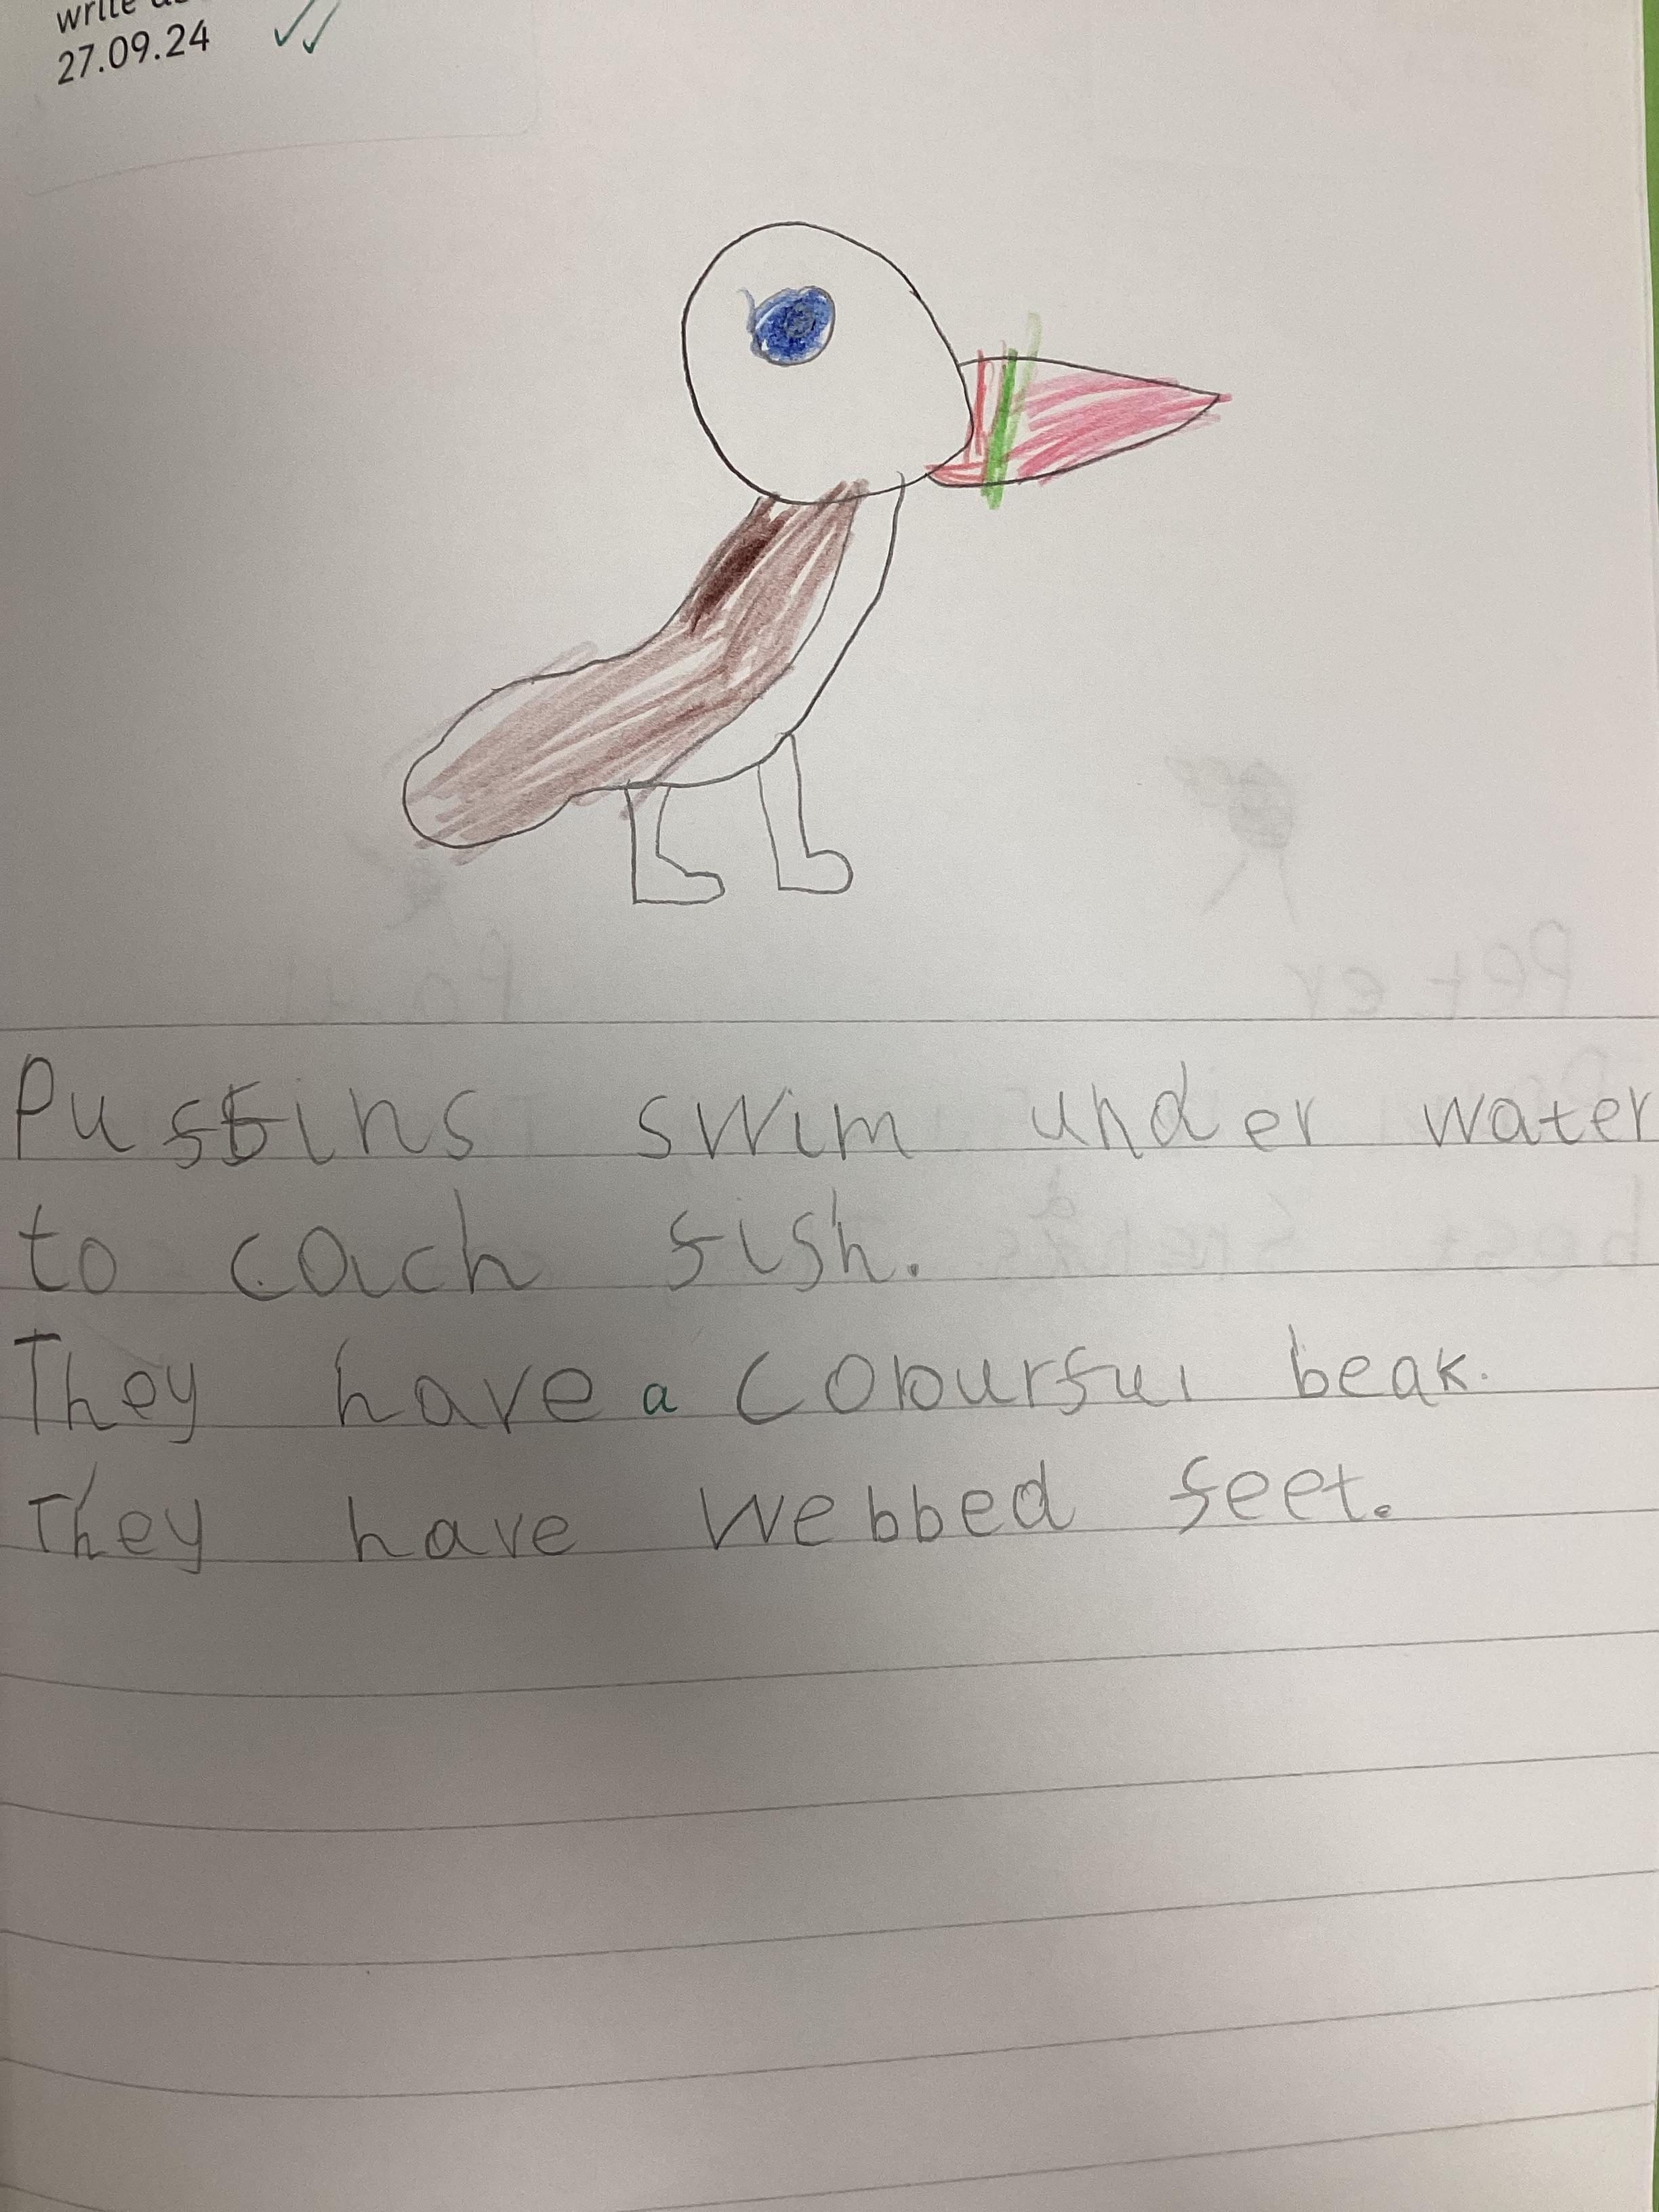 27.09.24
Puffins swim under water
to cach fish.
They have a colourful beak.
They have webbed feet.